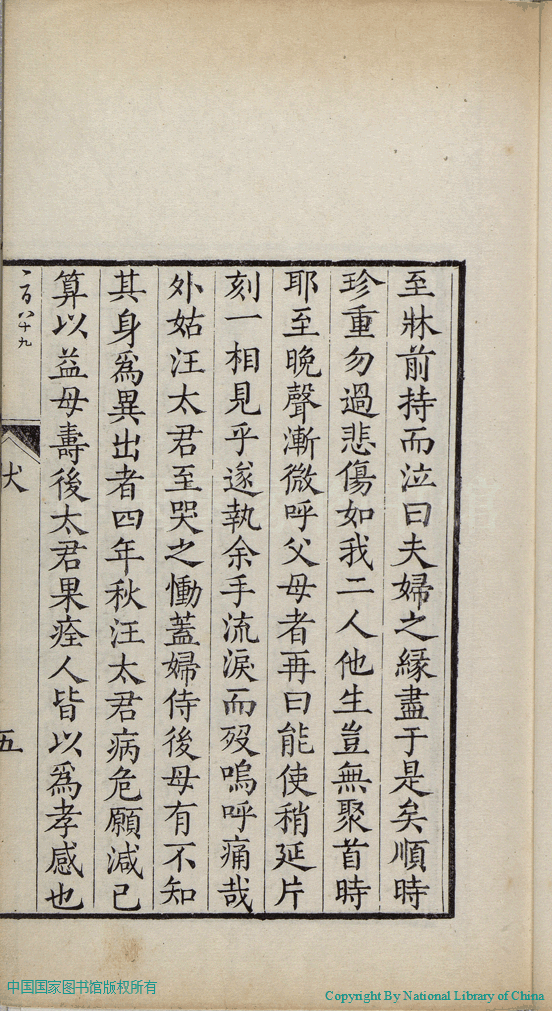 至牀前持而泣曰夫婦之縁盡于是矣順時
珍重勿過悲傷如我二人他生豈無聚首時
耶至晚聲漸微呼父母者再曰能使稍延片
刻一相見乎遂執余手流淚而歿嗚呼痛哉
外姑汪太君至哭之慟蓋婦侍後母有不知
其身爲異出者四年秋汪太君病危願減已
算以益母壽後太君果痊人皆以爲孝感也
二百八十九
五
中国国家图书馆版权所有
Copyright By National Library of China